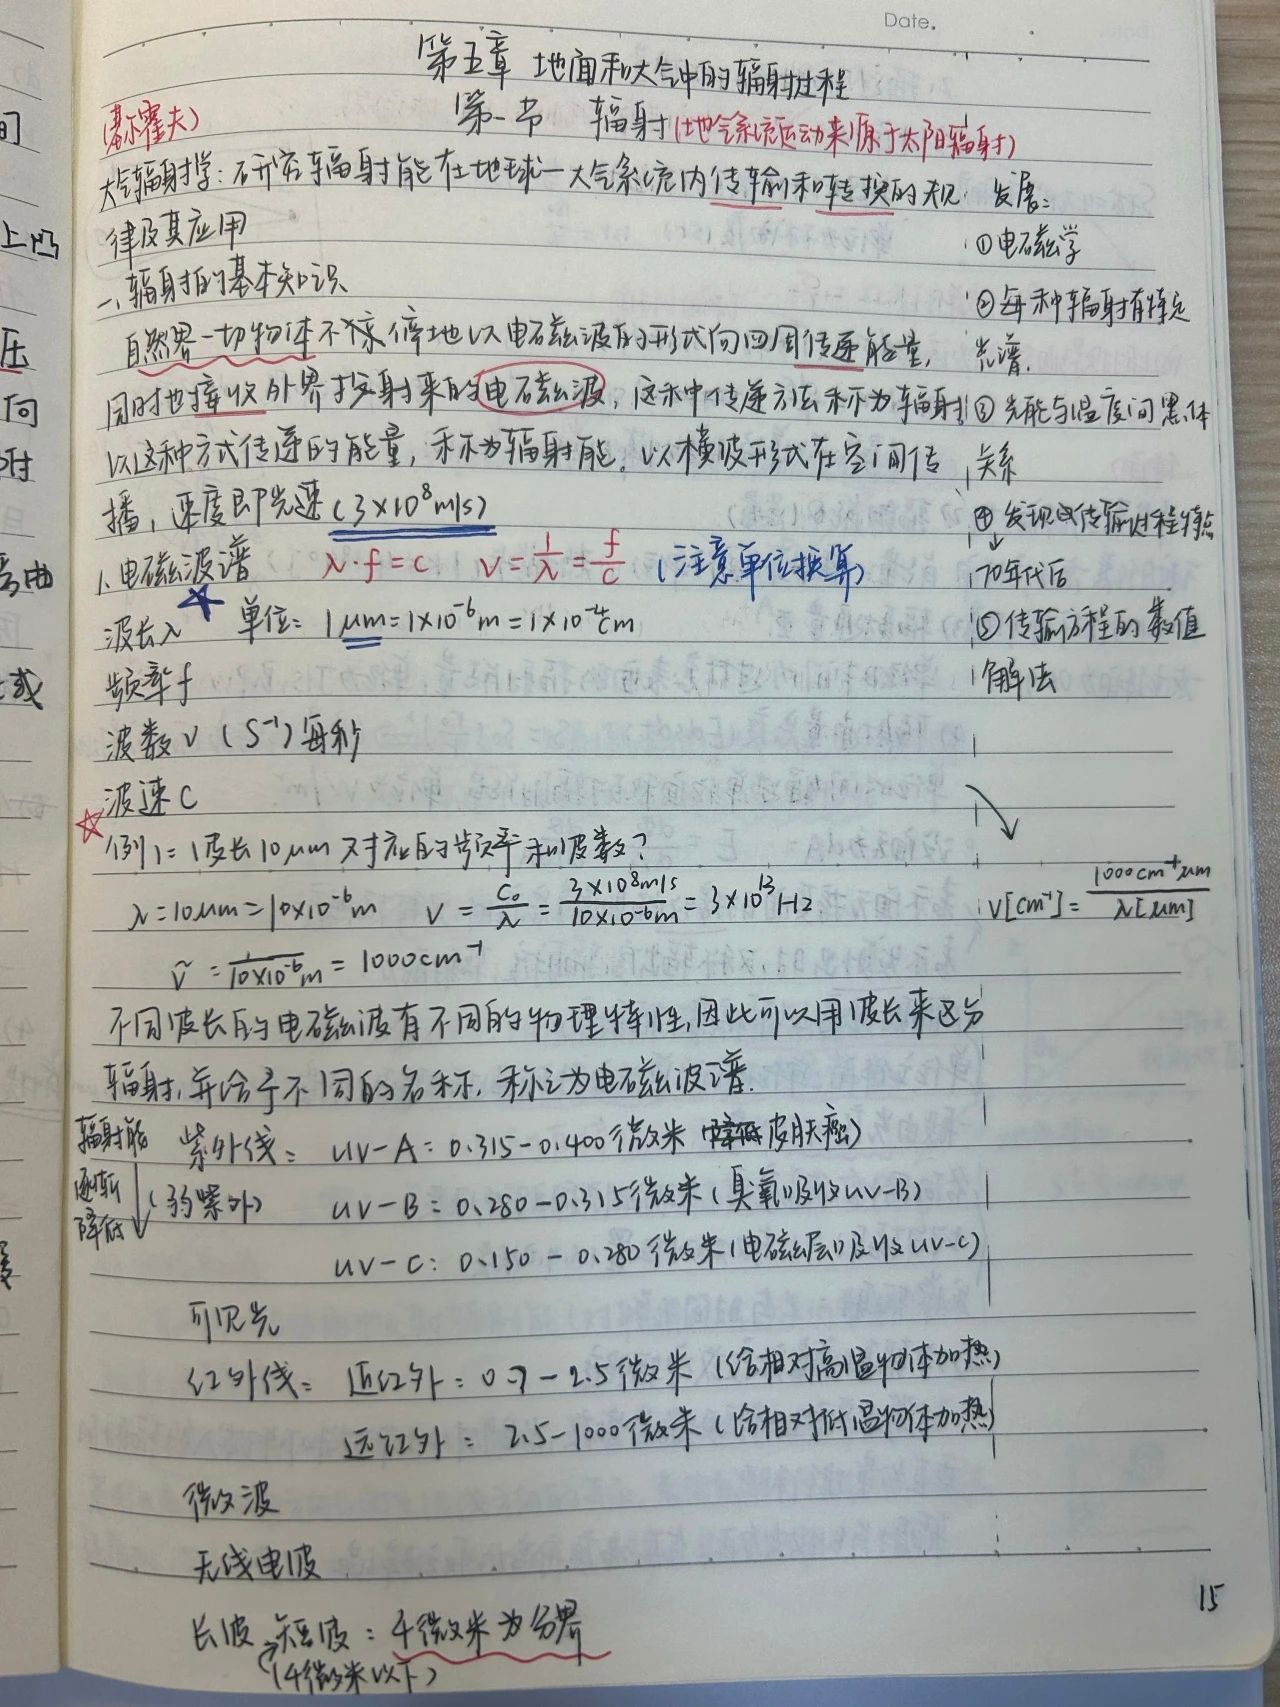 Date.
第五章 地面和大气中的辐射过程
第一节 辐射(地气系统运动来源于太阳辐射)
(基尔霍夫)
大气辐射学:研究辐射能在地球一大气系统内传输和转换的规
律及其应用
一、辐射的基本知识
自然界一切物体不停地以电磁波的形式向四周传递能量,
同时也接收外界投射来的电磁波,这种传递方法称为辐射
以这种方式传递的能量,称为辐射能。以横波形式在空间传
播,速度即光速(3×10⁸m/s)
1、电磁波谱 λ·f=c ν=1/λ=f/c (注意单位换算)
波长λ 单位:1μm=1×10⁻⁶m=1×10⁻⁴cm
频率f
波数ν(S⁻¹)每秒
波速C
例1:波长10μm对应的频率和波数?
λ=10μm=10×10⁻⁶m ν=C₀/λ=3×10⁸m/s/10×10⁻⁶m=3×10¹³Hz
ṽ=1/10×10⁻⁶m=1000cm⁻¹
不同波长的电磁波有不同的物理特性,因此可以用波长来区分
辐射,并给予不同的名称,称之为电磁波谱.
辐射能
逐渐
降低
紫外线: UV-A:0.315-0.400微米 降低皮肤癌)
(弱紫外) UV-B:0.280-0.315微米(臭氧吸收UV-B)
UV-C:0.150-0.280微米(电磁层吸收UV-C)
可见光
红外线: 近红外:0.7-2.5微米(给相对高温物体加热)
远红外:2.5-1000微米(给相对低温物体加热)
微波
无线电波
长波 短波:4微米为分界
(4微米以下)
发展:
①电磁学
②每种辐射有特定
光谱.
③光能与温度间黑体
关系
④发现传输过程特点
70年代后
⑤传输方程的数值
解法
ν[cm⁻¹]=1000cm⁻¹μm/λ[μm]
15
间
上凹
压
向
附
弯曲
或